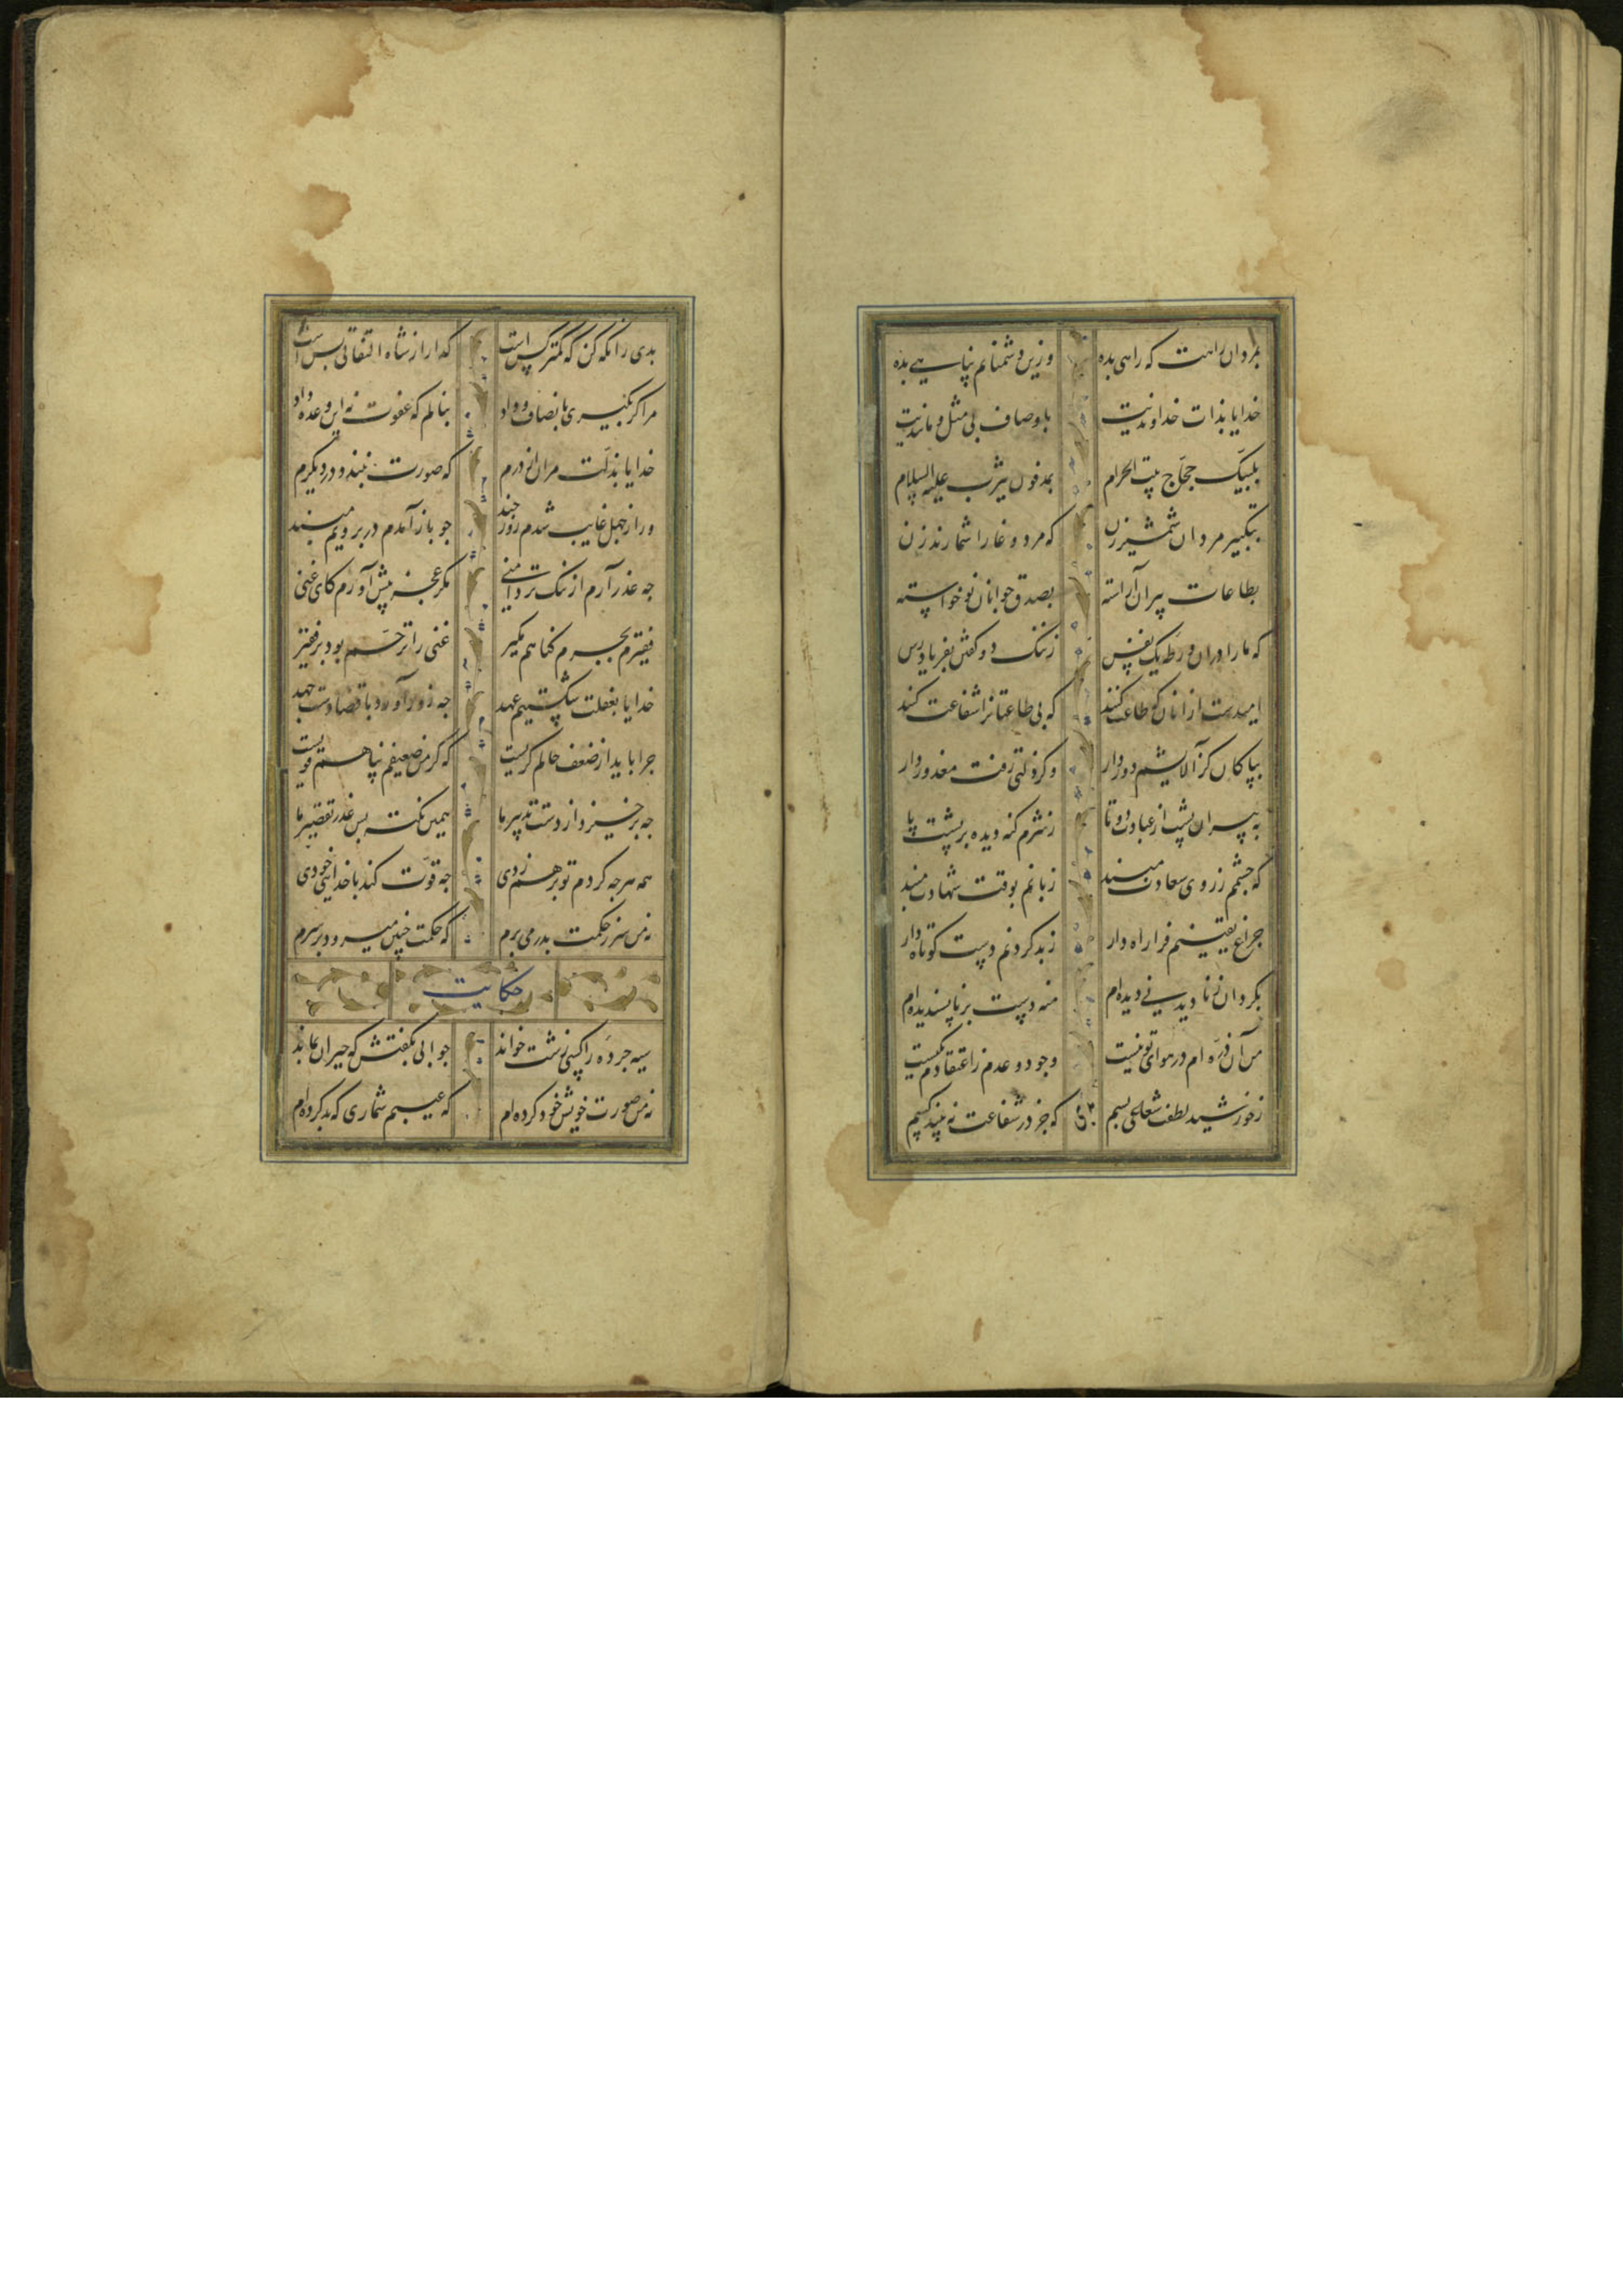 بمردان راهت که راهی بده وزین دشمنانم پناهی بده
خدایا بذات خداوندیت باوصاف بی مثل و مانندیت
بلبیک حجاج بیت الحرام بمدفون یثرب علیه السلام
بتکبیر مردان شمشیرزن که مرد وغا را شمارند زن
بطاعات پیران آراسته بصدق جوانان نوخواسته
که ما را دران ورطه یک نفس زننک دو کفتن بفریاد رس
امیدست ازانان که طاعت کنند که بی طاعتانرا شفاعت کنند
بپاکان کز آلایشم دور دار وکر زلتی رفت معذور دار
به پیران پشت از عبادت دوتا زشرم کنه دیده بر پشت پا
که جشمم زروی سعادت مبند زبانم بوقت شهادت مبند
جراغ یقینم فرا راه دار زبد کردنم دست کوتاه دار
بکردان زنادیدنی دیده ام مده دست بر ناپسندیده ام
من آن ذره ام در هوای تو نیست وجود و عدم زاعتقادم یکیست
زخورشید لطفت شعاعی بسم که جز در شفاعت نه بیند کسم
بدی را نکه کن که کمتر کس است که ارا از شاه التفاتی بس است
مرا کر بکیری بانصاف و داد بنالم که عفوت نه این وعده داد
خدایا بذلت مران از درم که صورت نبندد در دیکرم
ور از جهل غایب شدم روز جند جو باز آمدم در برویم مبند
جه عذر آرم از ننک تردامنی مکر عجز پیش آورم کای غنی
فقیرم بجرم کناهم مکیر غنی را ترحم بود بر فقیر
خدایا بغفلت شکستیم عهد جه زور آورد با قضا دست جهد
جرا باید از ضعف حالم کریست که کر من ضعیفم پناهم قویست
جه برخیزد از دست تدبیر ما همین نکته بس عذر تقصیر ما
همه هرجه کردم تو برهم زدی جه قوت کند با خدایی خودی
نه من سر زحکمت بدر می برم که حکمت جنین میرود بر سرم
حکایت
سیه جرده را کسی زشت خواند جوابی بکفتش که حیران بماند
نه من صورت خویش خود کرده ام که عیبم شماری که بد کرده ام